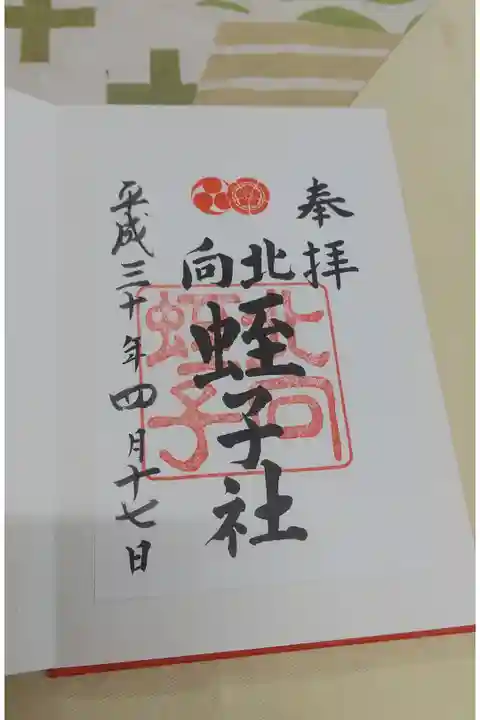 奉拝
北向
蛭子社
平成三十年四月十七日
北向
蛭子